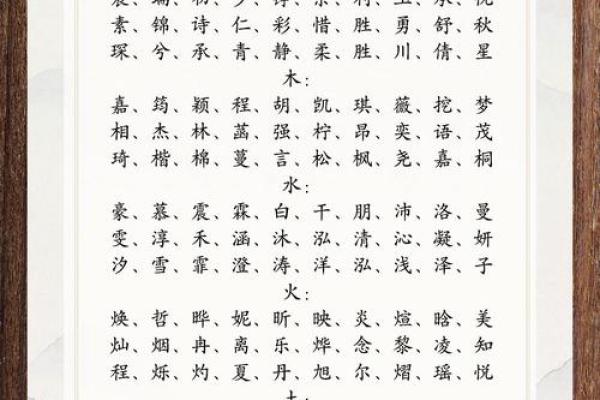 素、锦、诗、仁、彩、惜、胜、勇、舒、秋
琛、兮、承、青、静、柔、胜、川、倩、星
木：
嘉、筠、颖、程、胡、凯、琪、薇、挖、梦
相、杰、林、菡、强、柠、昂、奕、语、茂
琦、楷、棉、蔓、言、松、枫、尧、嘉、桐
水：
豪、慕、震、霖、白、干、朋、沛、洛、曼
雯、淳、禾、涵、沐、泓、清、沁、凝、妍
汐、雪、霏、澄、涛、洋、泓、浅、泽、子
火：
焕、哲、晔、妮、昕、映、炎、煊、晗、美
灿、烟、冉、离、乐、烨、念、黎、凌、知
程、烁、灼、夏、丹、旭、尔、熠、瑶、悦